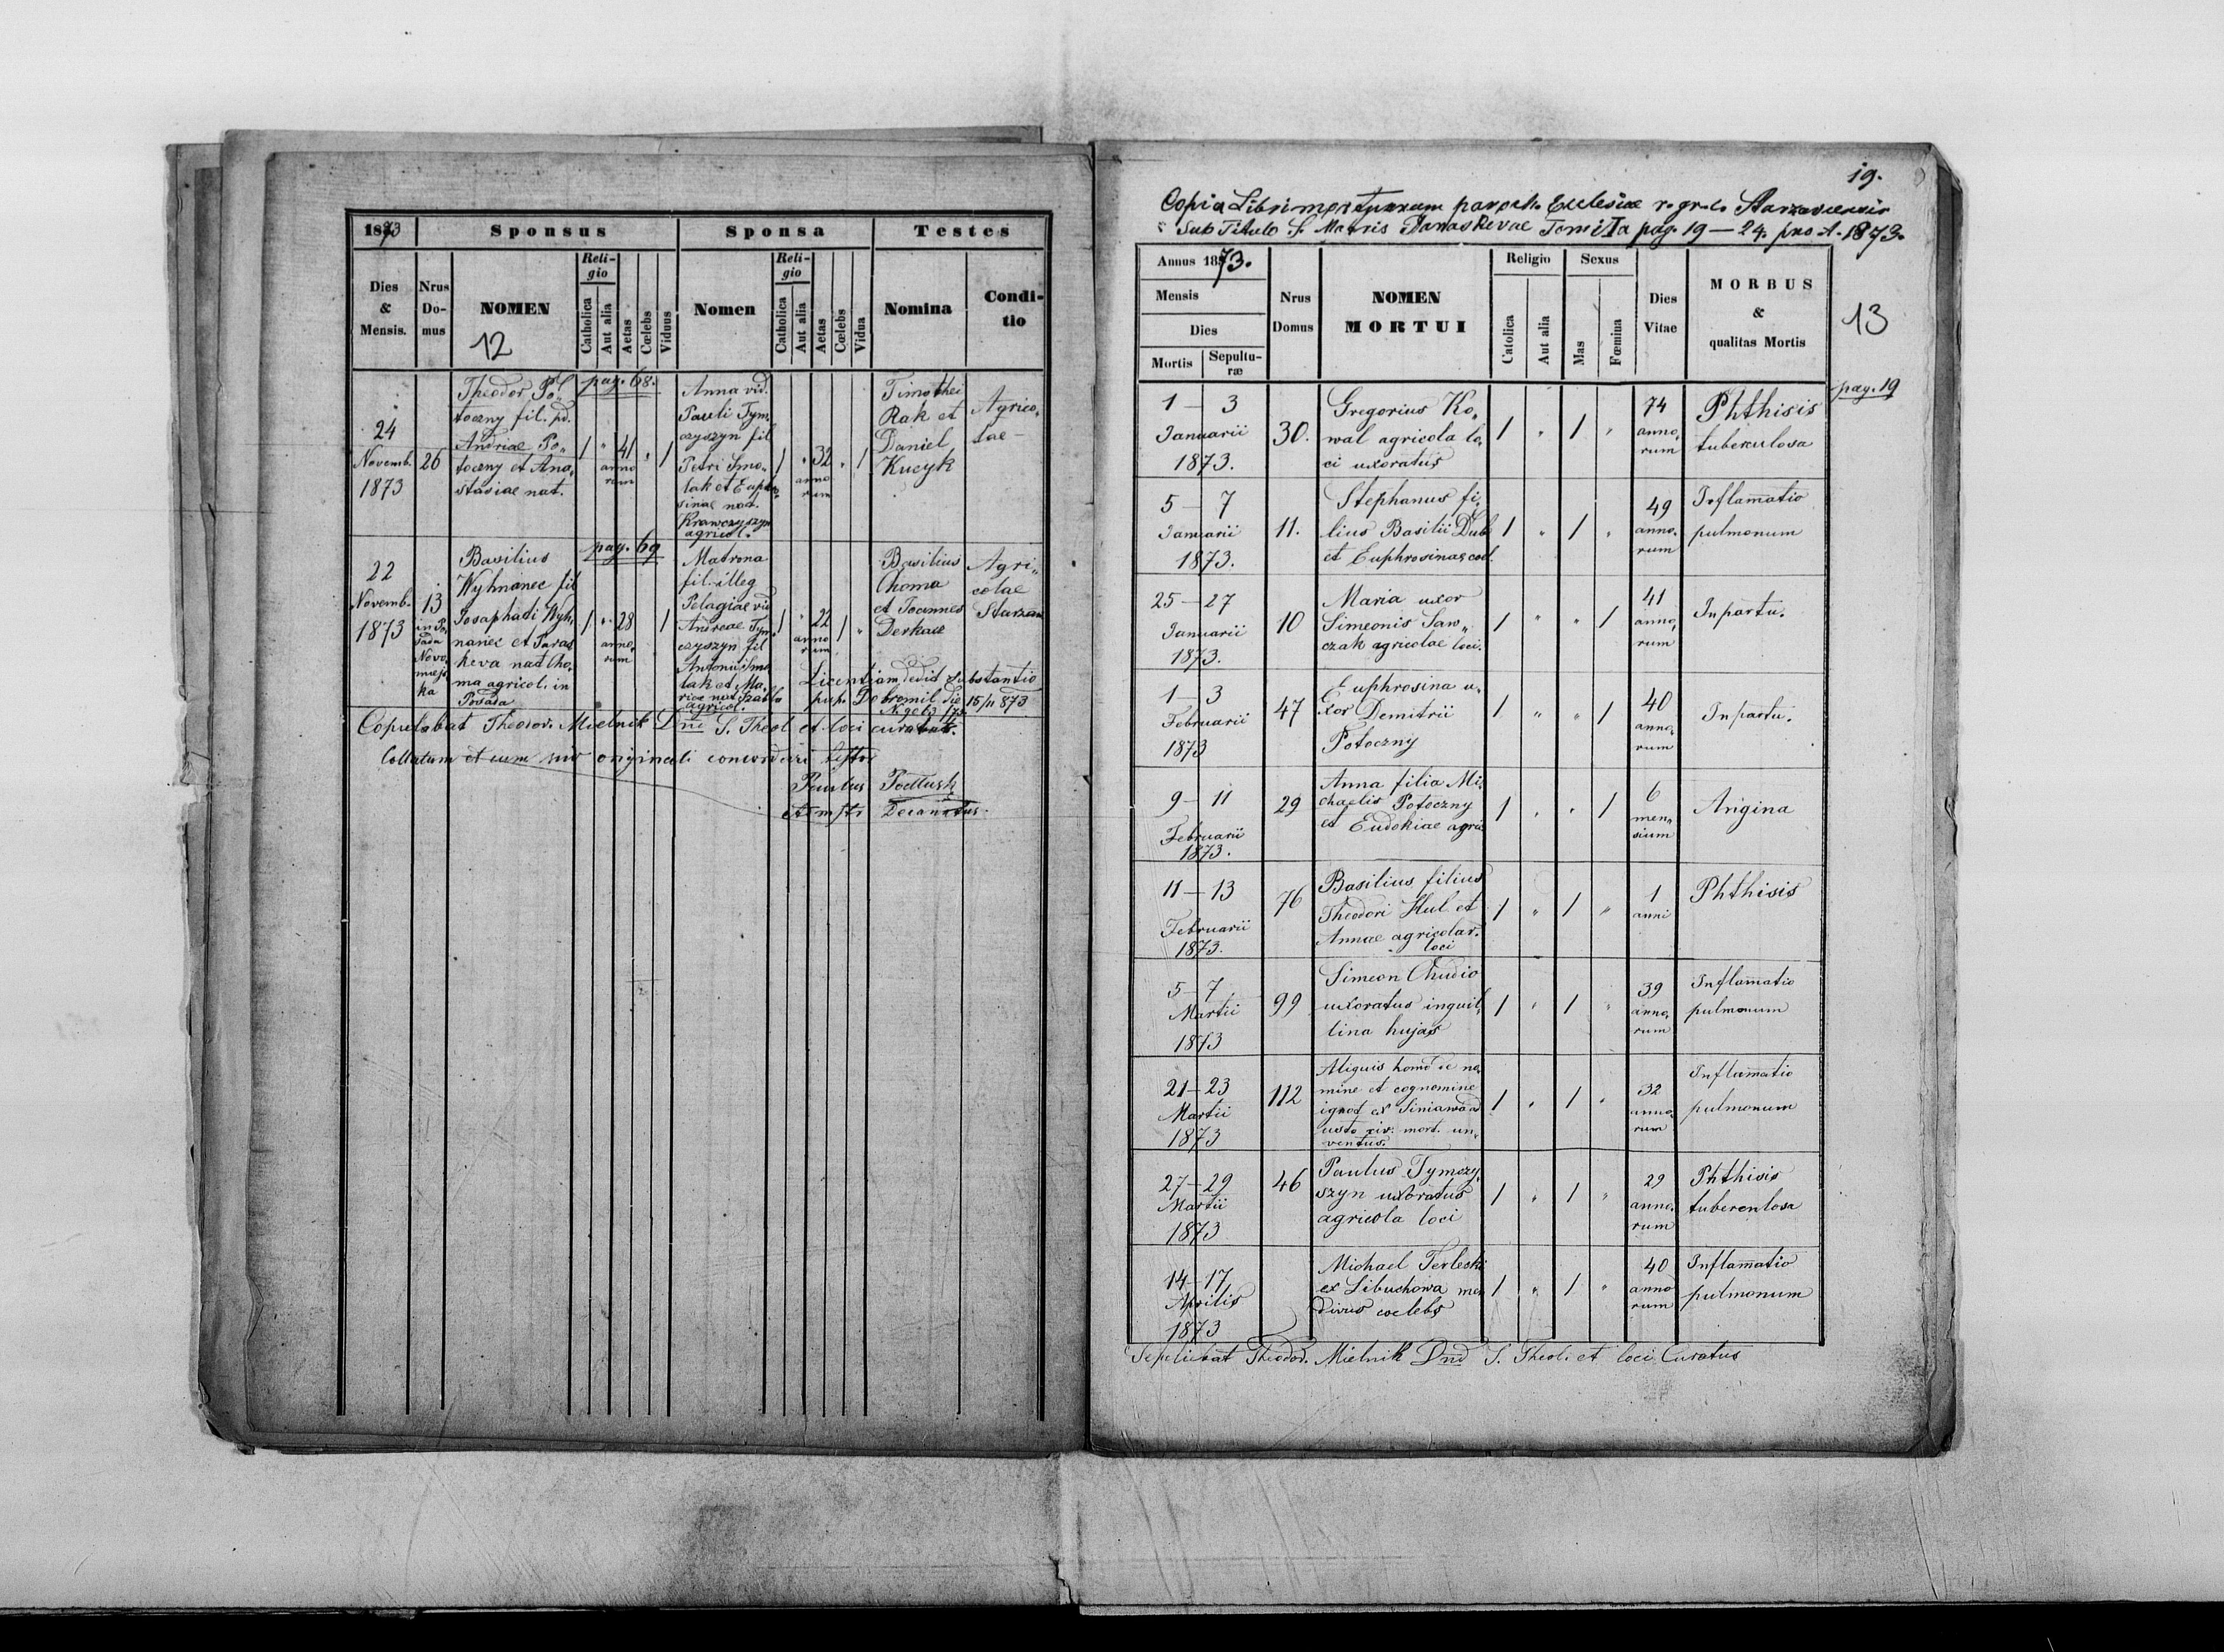 1873
Sponsus
Sponsa
Testes
Dies & Mensis.
Nrus Do- mus
NOMEN
12
Reli- gio
Catholica
Aut alia
Aetas
Cœlebs
Viduus
Nomen
Reli- gio
Catholica
Aut alia
Aetas
Cœlebs
Vidua
Nomina
Condi- tio
pag. 68.
24
Novemb.
1873
26
Theodor Po„
toczny fil. pd.
Andriae Po„
toczny et Ana„
stasiae nat.
/ „ 41 „ /
anno
rum
Anna vid.
Pauli Tym„
czyszyn fil
Petri Smo„
lak et Euph„
sinae nat.
Krawczyszyn
agricol.
/ „ 32 „ /
anno
rum
Timothei
Rak et
Daniel
Kucyk
Agrico„
lae
pag. 69
22
Novemb.
1873
13
in Po„
sada
Novo„
miejs
ka
Basilius
Wyhnanec fil
Josaphati Wyh„
nanec et Paras
keva nat Cho„
ma agricol. in
Posada
/ „ 28 /
anno„
rum
Matrona
fil. illeg
Pelagiae vid
Andreae Tym„
czyszyn fil
Antonii Smo
lak et Ma„
riae nat Szabla
agricol.
/ „ 22 / „
anno
rum
Basilius
Choma
et Joannes
Derkacz
Agri„
colae
Starzawa
Licentiam dedit Substantio
pup. Dobromil die 15/11 873
Copulabat Theodor. Mielnik Dni S. Theol et loci curatus.
Collatum et cum suo originali concordari testor
Paulus
Decanatus.
19.
Copia Libri mortuorum paroch. Ecclesiae r. gr. c. Starzaviensis
Sub Titulo S. Matris Paraskevae Tomi II a pag. 19 — 24. pro A. 1873.
13
Annus 1873.
Mensis
Dies
Mortis
Sepultu- ræ
Nrus Domus
NOMEN MORTUI
Religio
Catolica
Aut alia
Sexus
Mas
Fœmina
Dies Vitae
MORBUS & qualitas Mortis
pag. 19
1 — 3
Januarii
1873.
30.
Gregorius Ko„
wal agricola lo„
ci uxoratus
/ „ / „
74
anno„
rum
Phthisis
tuberculosa
5 — 7
Januarii
1873.
11.
Stephanus fi„
lius Basilii Dub
et Euphrosinae coel.
/ „ / „
49
anno„
rum
Inflamatio
pulmonum
25 — 27
Januarii
1873.
10
Maria uxor
Simeonis Saw„
czak agricolae loci.
/ „ „ /
41
anno„
rum
In partu.
1 — 3
Februarii
1873
47
Euphrosina u„
xor Demitrii
Potoczny
/ „ „ /
40
anno„
rum
In partu.
9 — 11
Februarii
1873.
29
Anna filia Mi„
chaelis Potoczny
et Eudokiae agric
/ „ „ /
6
men„
sium
Angina
11 — 13
Februarii
1873.
76
Basilius filius
Theodori Hul et
Annae agricolar.
loci
/ „ / „
1
anni
Phthisis
5 — 7
Martii
1873
99
Simeon Chudio
uxoratus inquil„
lina hujas
/ „ / „
39
anno„
rum
Inflamatio
pulmonum
21 — 23
Martii
1873
112
Aliquis homo de no„
mine et cognomine
ignot ex Siniawa
mort. in„
ventus.
/ „ / „
32
anno„
rum
Inflamatio
pulmonum
27 — 29
Martii
1873
46
Paulus Tymczy„
szyn uxoratus
agricola loci
/ „ / „
29
anno„
rum
Phthisis
tuberculosa
14 — 17
Aprilis
1873
Michael Terlecki
ex Libuchowa men
dicus coelebs
/ „ / „
40
anno
rum
Inflamatio
pulmonum
Sepeliebat Theodor. Mielnik Dni S. Theol. et loci Curatus